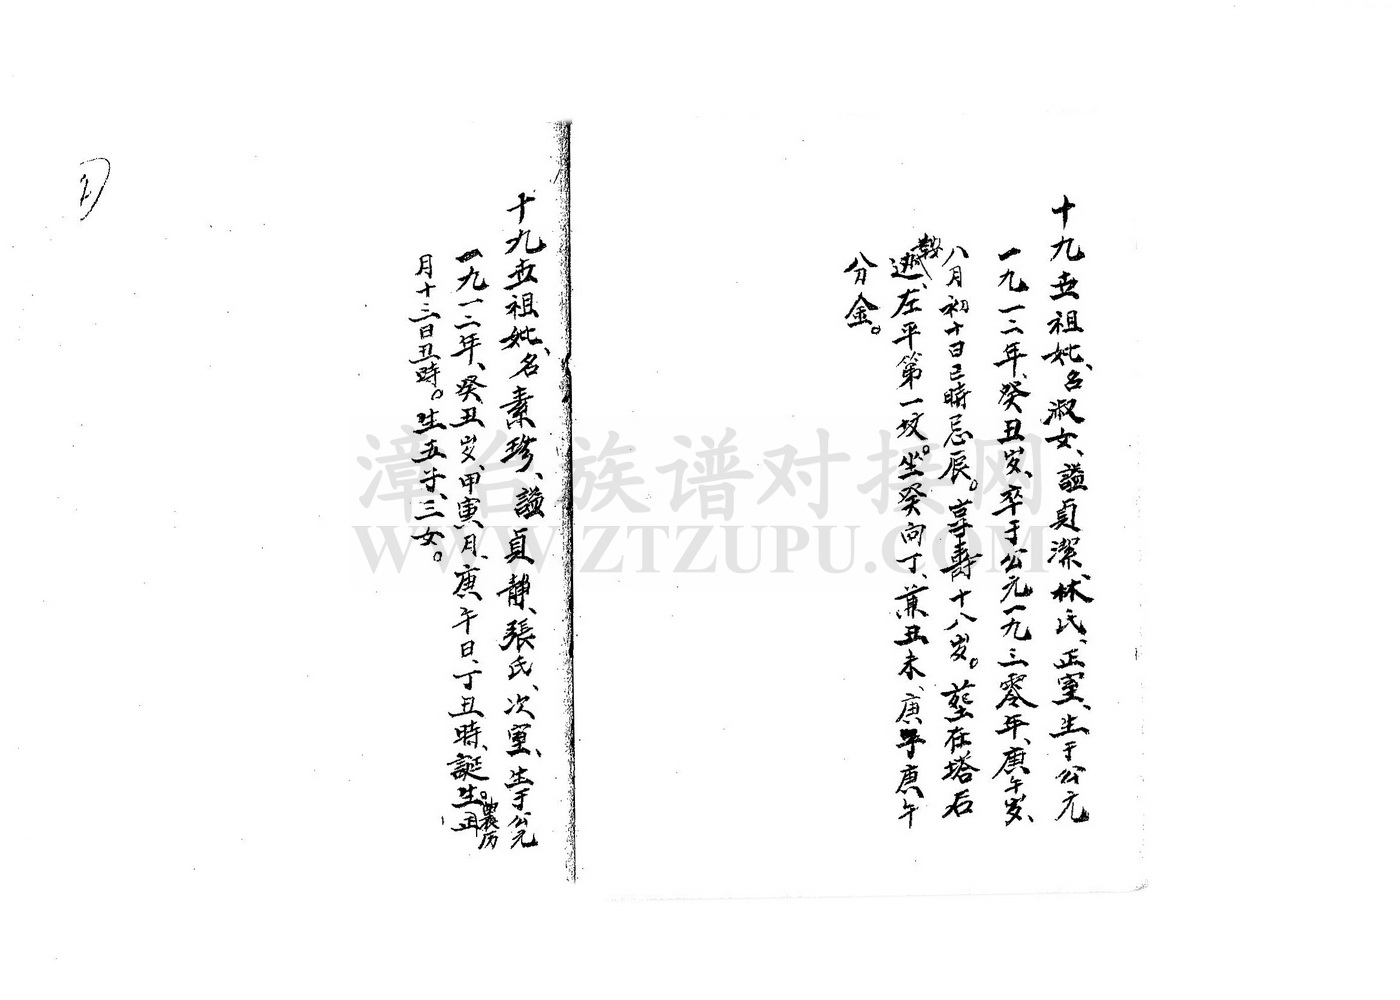 十九世祖妣、名淑女、謚貞潔、林氏、正室、生于公元
一九一二年、癸丑岁、卒于公元一九三零年、庚午岁、
八月初十日巳時忌辰。享壽十八岁。塟在塔石
鞍
左平第一坟。坐癸向丁、兼丑未、庚子庚午
分金。
十九世祖妣、名素珍、謚貞静、張氏、次室、生于公元
一九一二年、癸丑岁、甲寅月、庚午日、丁丑時、誕生。農历正
月十三日丑時。生五子、三女。
漳台族谱对接网
WWW.ZTZUPU.COM